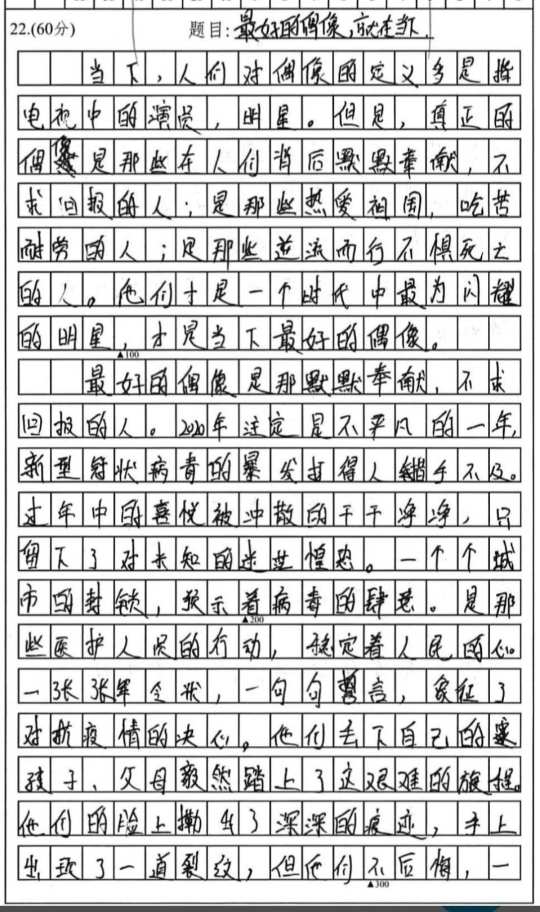 22.(60分) 题目:最好的偶像,就在当下.
当下,人们对偶像的定义多是指
电视中的演员,明星。但是,真正的
偶像是那些在人们背后默默奉献,不
求回报的人;是那些热爱祖国,吃苦
耐劳的人;是那些逆流而行不惧死亡
的人。他们才是一个时代中最为闪耀
的明星,才是当下最好的偶像。
▲100
最好的偶像是那默默奉献,不求
回报的人。2020年注定是不平凡的一年,
新型冠状病毒的暴发打得人措手不及。
过年中的喜悦被冲散的干干净净,只
留下了对未知的迷茫惶恐。一个个城
市的封锁,预示着病毒的肆虐。是那
▲200
些医护人员的行动,稳定着人民的心。
一张张军令状,一句句誓言,象征了
对抗疫情的决心。他们丢下自己的妻
孩子、父母毅然踏上了这艰难的旅程。
他们的脸上勒出了深深的痕迹,手上
出现了一道裂纹,但他们不后悔,一
▲300